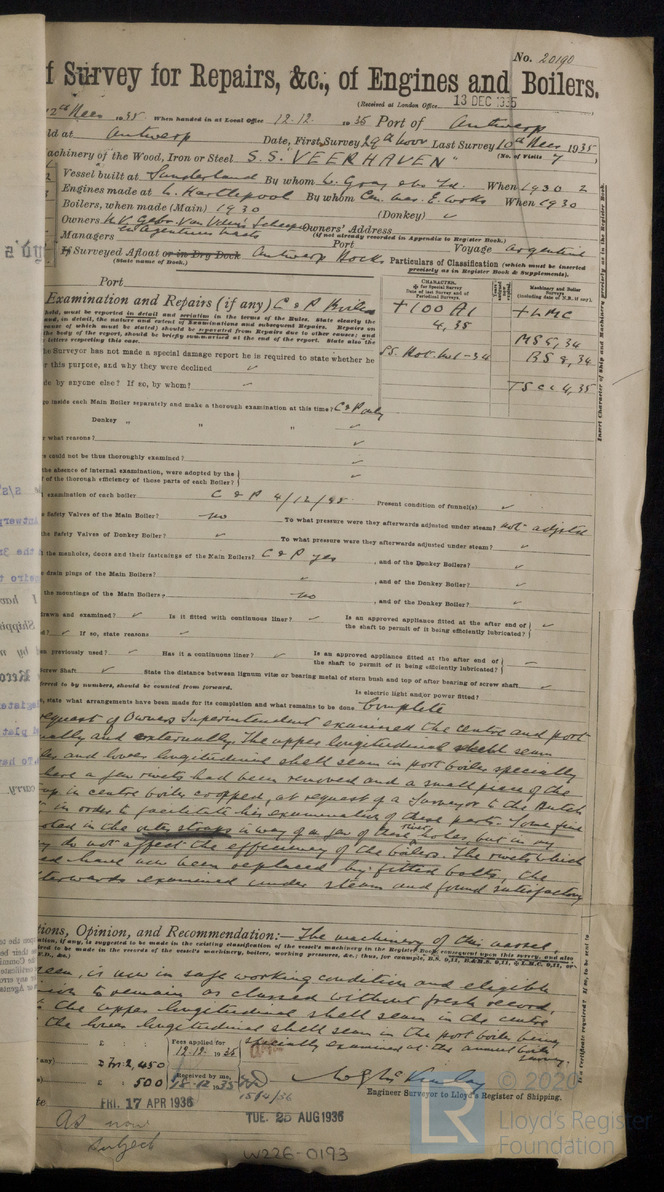 No. 20190
f Survey for Repairs, &c., of Engines and Boilers.
(Received at London Office 13 DEC 1935
2th Dec 1935 When handed in at Local Office 12.12. 1935 Port of Antwerp
ld at Antwerp Date, First Survey 29th Nov Last Survey 10th Dec 1935
(No. of Visits 7)
achinery of the Wood, Iron or Steel S.S. "VEERHAVEN"
Vessel built at Sunderland By whom W. Gray & Co Ld. When 1930 2
Engines made at W. Hartlepool By whom Cen. Mar. E. Works When 1930
Boilers, when made (Main) 1930 (Donkey) ✓
Owners N.V. Gebr. Van Owners' Address
(If not already recorded in Appendix to Register Book.)
Managers Port Voyage Argentine
If Surveyed Afloat or in Dry Dock Antwerp Docks
(State name of Dock.)
Particulars of Classification (which must be inserted
precisely as in Register Book & Supplements).
Port
Examination and Repairs (if any) C & P Boilers
CHARACTER,
for Special Survey
Date of last Survey and of
Periodical Surveys.
Machinery and Boiler
Surveys
(including date of N.B. if any).
+100 A1
4,35
SS. Rot. No1-34
+LMC
MS 5,34
BS 8,34
TS CL 4,35
held, must be reported in detail and seriatim in the terms of the Rules. State clearly the
and, in detail, the nature and extent of Examinations and subsequent Repairs. Repairs on
cause of which must be stated) should be separated from Repairs due to other causes; and
the body of the report, should be briefly summarised at the end of the report. State also the
letters respecting this case.
he Surveyor has not made a special damage report he is required to state whether he
r this purpose, and why they were declined ✓
de by anyone else? If so, by whom? ✓
go inside each Main Boiler separately and make a thorough examination at this time? C & P only
Donkey " " " ✓
r what reasons? ✓
s could not be thus thoroughly examined? ✓
the absence of internal examination, were adopted by the
f the thorough efficiency of those parts of each Boiler? ✓
examination of each boiler C & P 4/12/35 Present condition of funnel(s) ✓
e Safety Valves of the Main Boiler? no To what pressure were they afterwards adjusted under steam? not adjusted
the Safety Valves of Donkey Boiler? ✓ To what pressure were they afterwards adjusted under steam? ✓
ll the manholes, doors and their fastenings of the Main Boilers? C & P yes, and of the Donkey Boilers? ✓
e drain plugs of the Main Boilers? ✓, and of the Donkey Boiler? ✓
the mountings of the Main Boilers? no, and of the Donkey Boiler? ✓
drawn and examined? ✓ Is it fitted with continuous liner? ✓ Is an approved appliance fitted at the after end of
the shaft to permit of it being efficiently lubricated? ✓
d? ✓ If so, state reasons ✓
en previously used? ✓ Has it a continuous liner? ✓ Is an approved appliance fitted at the after end of
the shaft to permit of it being efficiently lubricated? ✓
crew Shaft ✓ State the distance between lignum vitæ or bearing metal of stern bush and top of after bearing of screw shaft ✓
ferred to by numbers, should be counted from forward. Is electric light and/or power fitted?
, state what arrangements have been made for its completion and what remains to be done Complete
equest of Owners Superintendent examined the centre and port
nally and externally. The upper longitudinal shell seam
ler and lower longitudinal shell seam in port boiler specially
here a few rivets had been removed and a small piece of the
up in centre boiler cropped, at request of a Surveyor to the Dutch
in order to facilitate his examination of these parts. Some fine
oted in the outer straps in way of a few of these rivet holes but in my
y do not affect the efficiency of the boilers. The rivets which
ed have now been replaced by fitted bolts, the
fterwards examined under steam and found satisfactory
tions, Opinion, and Recommendation:— The machinery of this vessel,
ation, if any, is suggested to be made in the existing classification of the vessel's machinery in the Register Book consequent upon this survey, and also
ed to be made in the records of the vessel's machinery, boilers, working pressures, &c.; thus, for example,
seen, is now in safe working condition and eligible
nion to remain as classed without fresh record,
the upper longitudinal shell seam in the centre
the lower longitudinal shell seam in the port boiler being
specially examined at the annual boiler
survey.
Fees applied for
12.12.1935
2,450
500
Received by me,
1935
15/4/36
Engineer Surveyor to Lloyd's Register of Shipping.
FRI. 17 APR 1936
TUE. 25 AUG 1936
As now
Subject
W226-0193
© 2020
Lloyd's Register
Foundation
LR
Insert Character of Ship and Machinery precisely as in the Register Book.